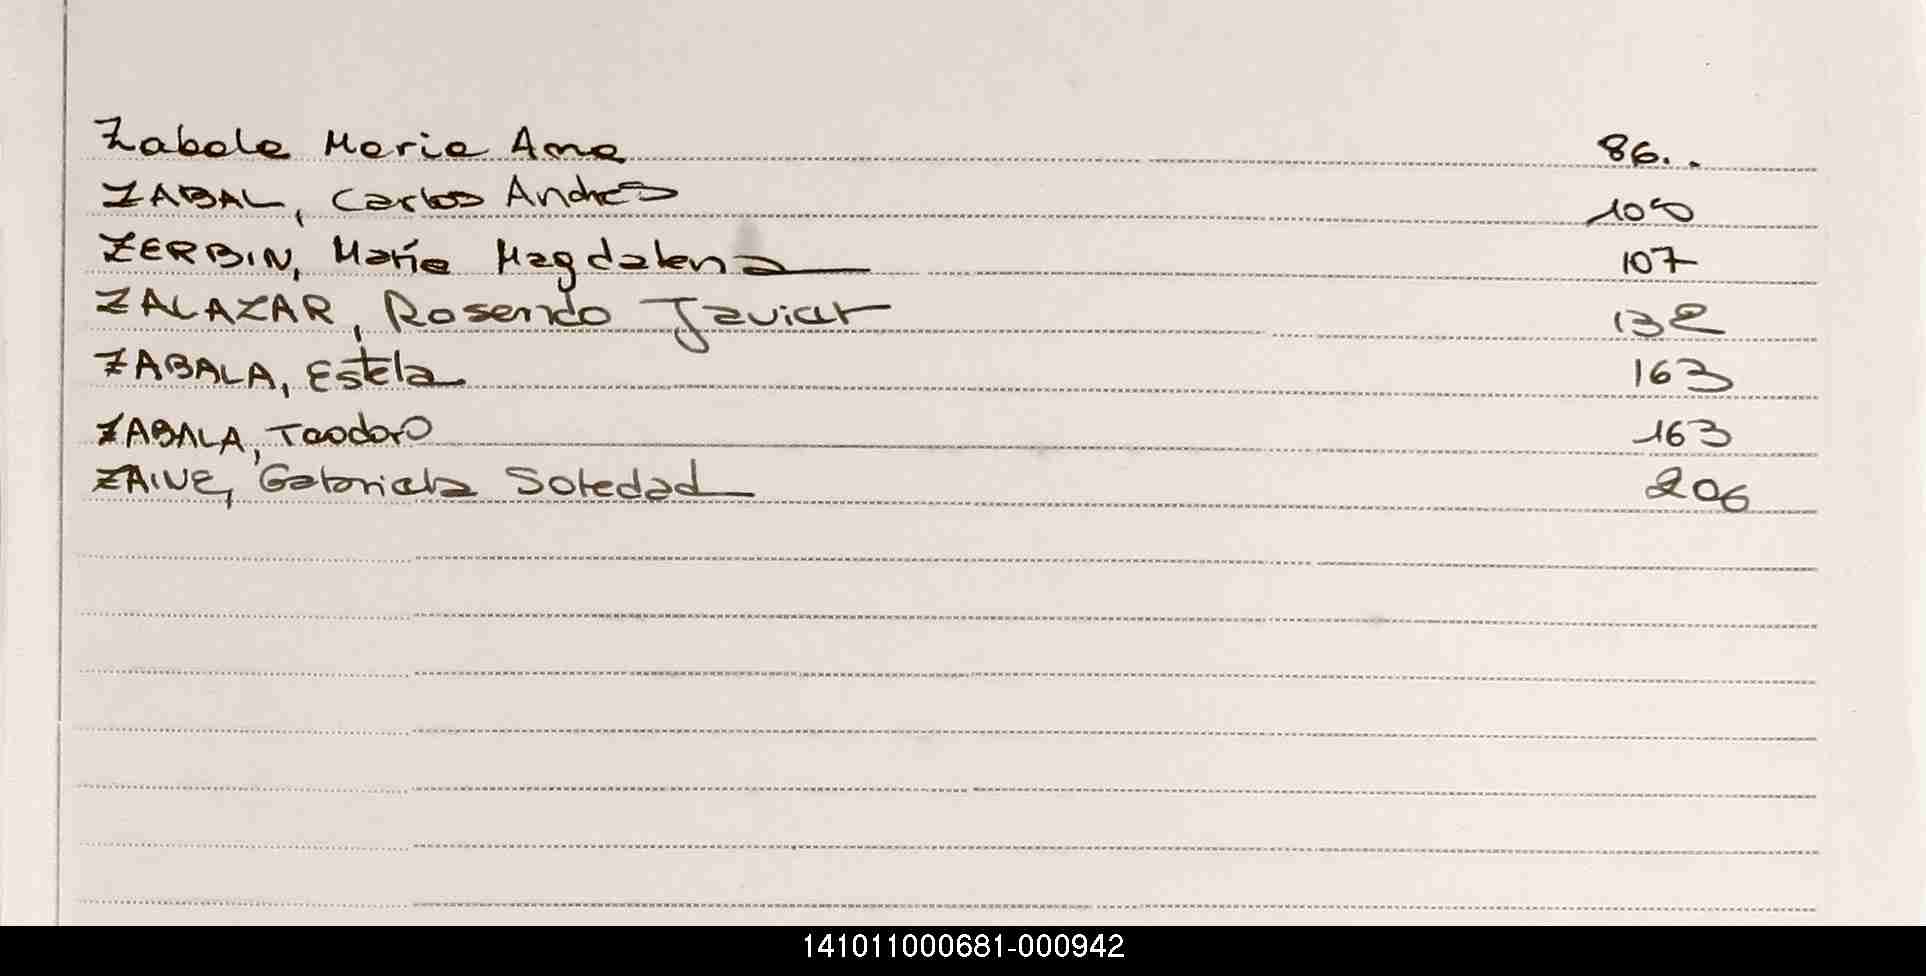 Zabala Maria Ana 86..
ZABAL, Carlos Andrés 100
ZERBIN, María Magdalena 107
ZALAZAR, Rosendo Javier 132
ZABALA, Estela 163
ZABALA, Teodoro 163
ZAINE, Gabriela Soledad 206
141011000681-000942